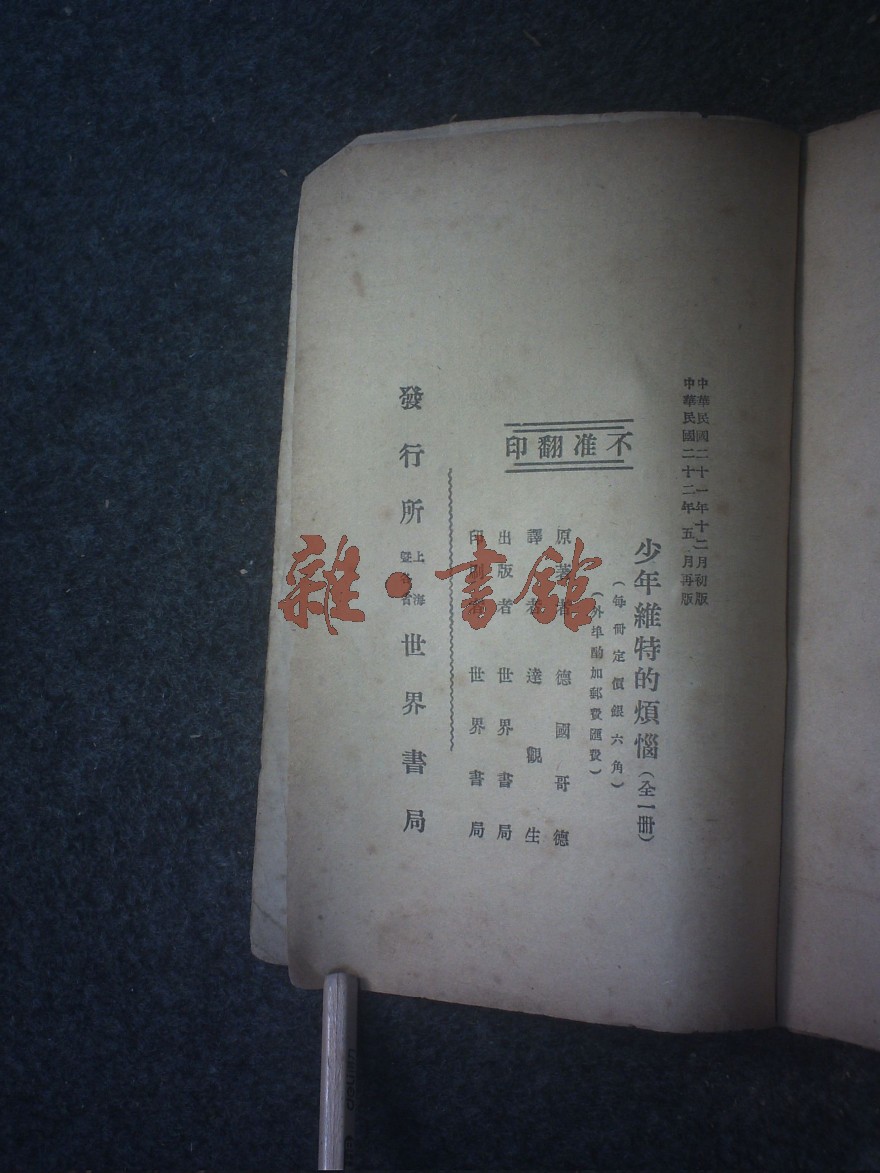 中華民國二十一年十二月初版
中華民國二十二年五月再版
少年維特的煩惱(全一冊)
(每冊定價銀六角)
(外埠酌加郵費匯費)
不准翻印
原著者 德國哥德
譯者 達觀生
出版者 世界書局
印刷者 世界書局
發行所 上海暨各省 世界書局
雜·書館